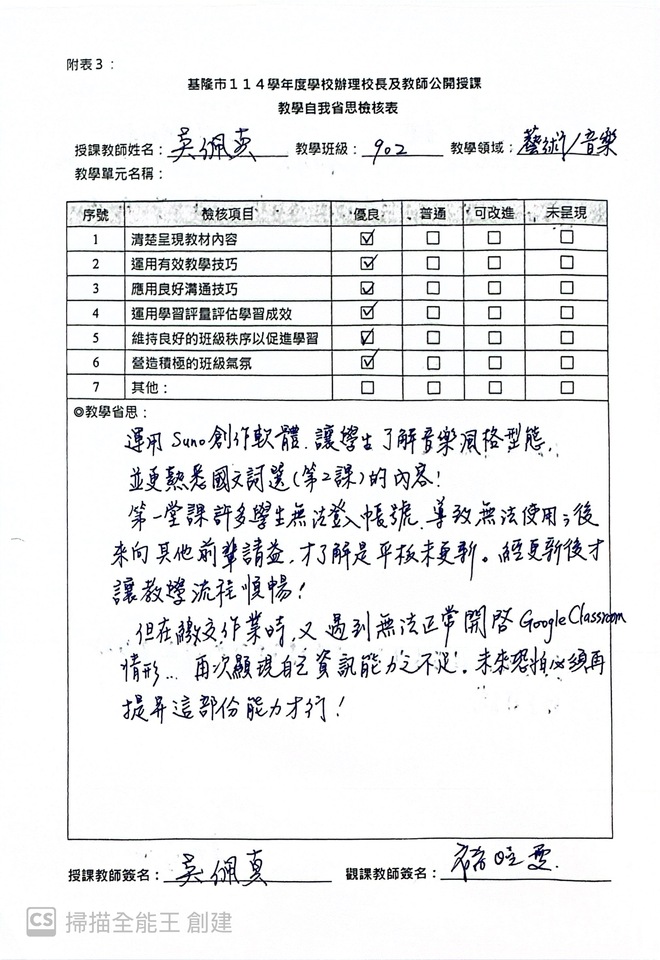 附表3：
基隆市114學年度學校辦理校長及教師公開授課
教學自我省思檢核表
授課教師姓名：吳佩真 教學班級：902 教學領域：藝術/音樂
教學單元名稱：
序號 檢核項目 優良 普通 可改進 未呈現
1 清楚呈現教材內容 ☑ ☐ ☐ ☐
2 運用有效教學技巧 ☑ ☐ ☐ ☐
3 應用良好溝通技巧 ☑ ☐ ☐ ☐
4 運用學習評量評估學習成效 ☑ ☐ ☐ ☐
5 維持良好的班級秩序以促進學習 ☑ ☐ ☐ ☐
6 營造積極的班級氣氛 ☑ ☐ ☐ ☐
7 其他： ☐ ☐ ☐ ☐
◎教學省思：
運用Suno創作軟體，讓學生了解音樂風格型態，
並更熟悉國文詞選(第2課)的內容！
第一堂課許多學生無法登入帳號，導致無法使用；後
來向其他前輩請益，才了解是平板未更新。經更新後才
讓教學流程順暢！
但在繳交作業時，又遇到無法正常開啟Google Classroom
情形…再次顯現自己資訊能力之不足。未來恐怕必須再
提昇這部份能力才行！
授課教師簽名：吳佩真 觀課教師簽名：
CS 掃描全能王 創建